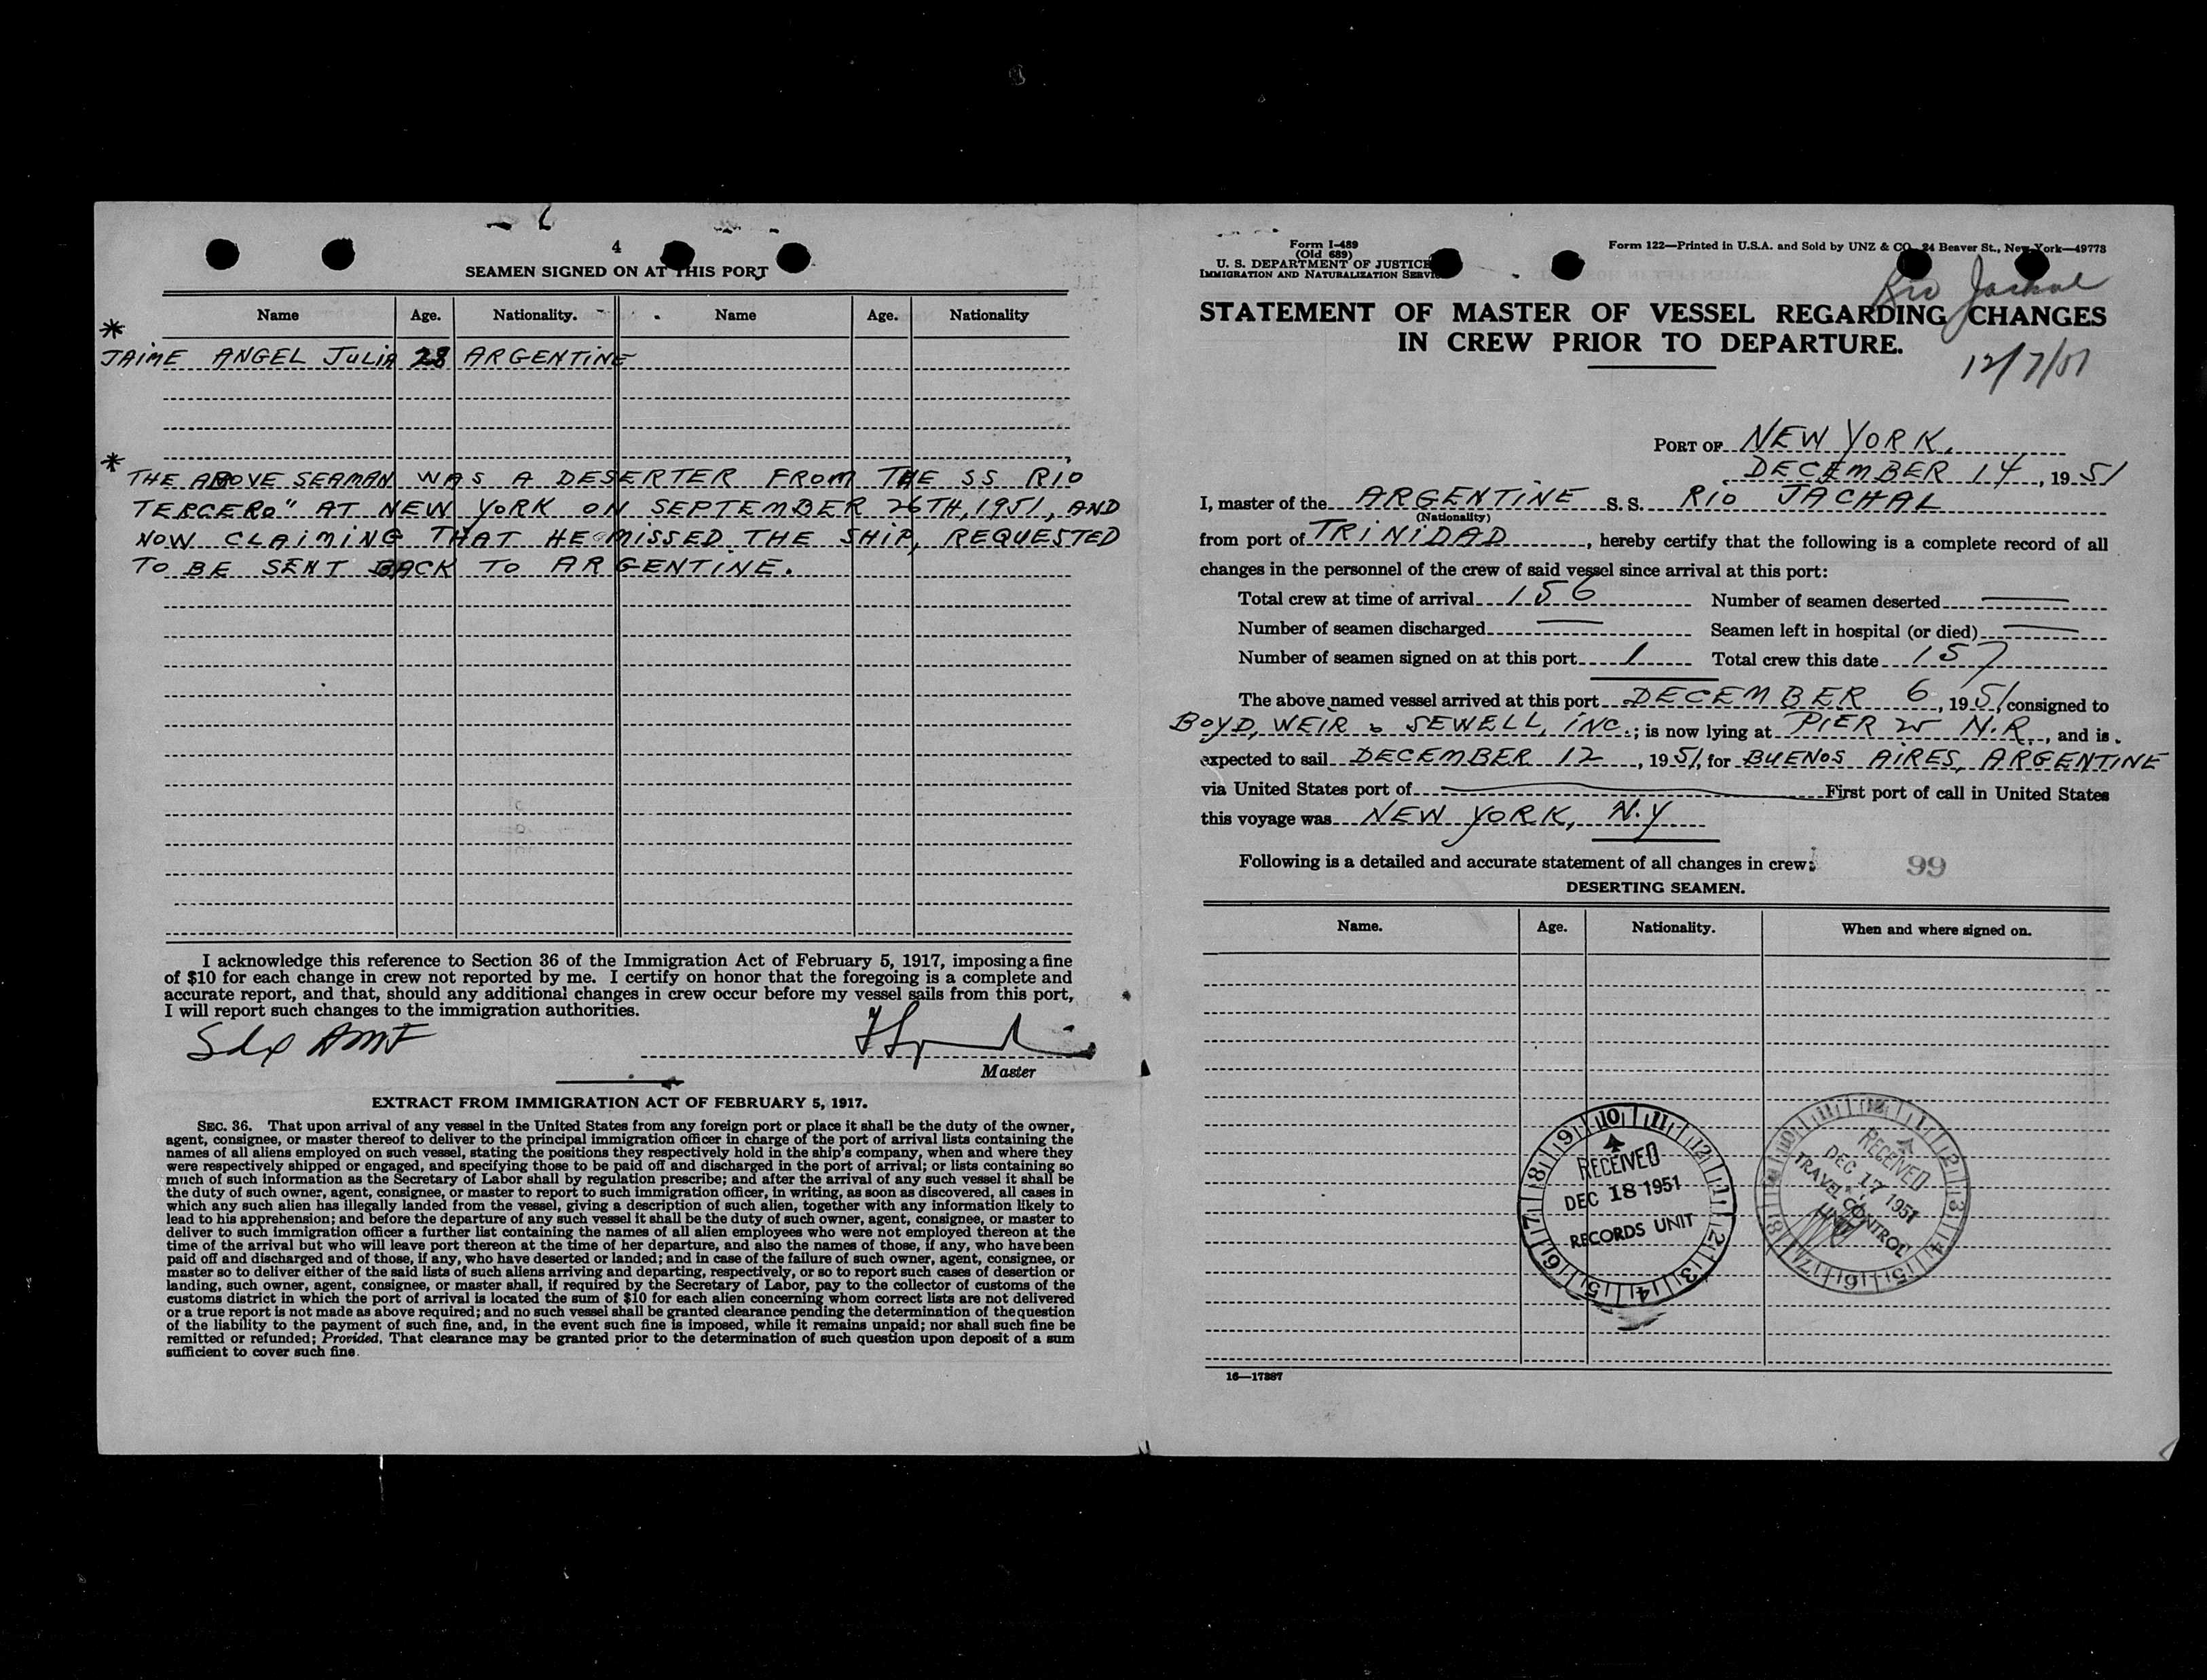 4
SEAMEN SIGNED ON AT THIS PORT
Name Age. Nationality. Name Age. Nationality
*
JAIME ANGEL JULIA 28 ARGENTINE
*
THE ABOVE SEAMAN WAS A DESERTER FROM THE SS RIO
TERCERO" AT NEW YORK ON SEPTEMBER 26TH, 1951, AND
NOW CLAIMING THAT HE MISSED THE SHIP, REQUESTED
TO BE SENT BACK TO ARGENTINE.
I acknowledge this reference to Section 36 of the Immigration Act of February 5, 1917, imposing a fine
of $10 for each change in crew not reported by me. I certify on honor that the foregoing is a complete and
accurate report, and that, should any additional changes in crew occur before my vessel sails from this port,
I will report such changes to the immigration authorities.
Master
EXTRACT FROM IMMIGRATION ACT OF FEBRUARY 5, 1917.
SEC. 36. That upon arrival of any vessel in the United States from any foreign port or place it shall be the duty of the owner,
agent, consignee, or master thereof to deliver to the principal immigration officer in charge of the port of arrival lists containing the
names of all aliens employed on such vessel, stating the positions they respectively hold in the ship's company, when and where they
were respectively shipped or engaged, and specifying those to be paid off and discharged in the port of arrival; or lists containing so
much of such information as the Secretary of Labor shall by regulation prescribe; and after the arrival of any such vessel it shall be
the duty of such owner, agent, consignee, or master to report to such immigration officer, in writing, as soon as discovered, all cases in
which any such alien has illegally landed from the vessel, giving a description of such alien, together with any information likely to
lead to his apprehension; and before the departure of any such vessel it shall be the duty of such owner, agent, consignee, or master to
deliver to such immigration officer a further list containing the names of all alien employees who were not employed thereon at the
time of the arrival but who will leave port thereon at the time of her departure, and also the names of those, if any, who have been
paid off and discharged and of those, if any, who have deserted or landed; and in case of the failure of such owner, agent, consignee, or
master so to deliver either of the said lists of such aliens arriving and departing, respectively, or so to report such cases of desertion or
landing, such owner, agent, consignee, or master shall, if required by the Secretary of Labor, pay to the collector of customs of the
customs district in which the port of arrival is located the sum of $10 for each alien concerning whom correct lists are not delivered
or a true report is not made as above required; and no such vessel shall be granted clearance pending the determination of the question
of the liability to the payment of such fine, and, in the event such fine is imposed, while it remains unpaid; nor shall such fine be
remitted or refunded; Provided, That clearance may be granted prior to the determination of such question upon deposit of a sum
sufficient to cover such fine.
Form I-489
(Old 689)
U. S. DEPARTMENT OF JUSTICE
IMMIGRATION AND NATURALIZATION SERVICE
Form 122—Printed in U.S.A. and Sold by UNZ & CO., 24 Beaver St., New York—49773
Rio Jachal
STATEMENT OF MASTER OF VESSEL REGARDING CHANGES
IN CREW PRIOR TO DEPARTURE.
12/7/51
PORT OF NEW YORK.
DECEMBER 14, 1951
I, master of the ARGENTINE S. S. RIO JACHAL
(Nationality)
from port of TRINIDAD, hereby certify that the following is a complete record of all
changes in the personnel of the crew of said vessel since arrival at this port:
Total crew at time of arrival 156 Number of seamen deserted —
Number of seamen discharged — Seamen left in hospital (or died) —
Number of seamen signed on at this port 1 Total crew this date 157
The above named vessel arrived at this port DECEMBER 6, 1951 consigned to
BOYD, WEIR & SEWELL, INC.; is now lying at PIER 25 N.R., and is
expected to sail DECEMBER 12, 1951, for BUENOS AIRES, ARGENTINE
via United States port of — First port of call in United States
this voyage was NEW YORK, N.Y.
Following is a detailed and accurate statement of all changes in crew:
99
DESERTING SEAMEN.
Name. Age. Nationality. When and where signed on.
RECEIVED
DEC 18 1951
RECORDS UNIT
RECEIVED
DEC 17 1951
TRAVEL CONTROL
UNIT
16—17387